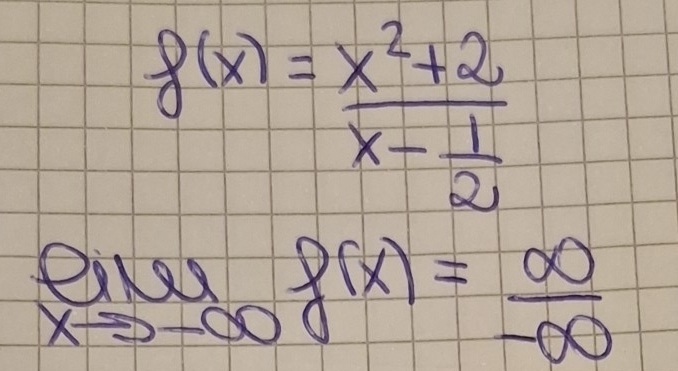 f(x) = x²+2
x - 1
2
lim f(x) = ∞
x→-∞ -∞